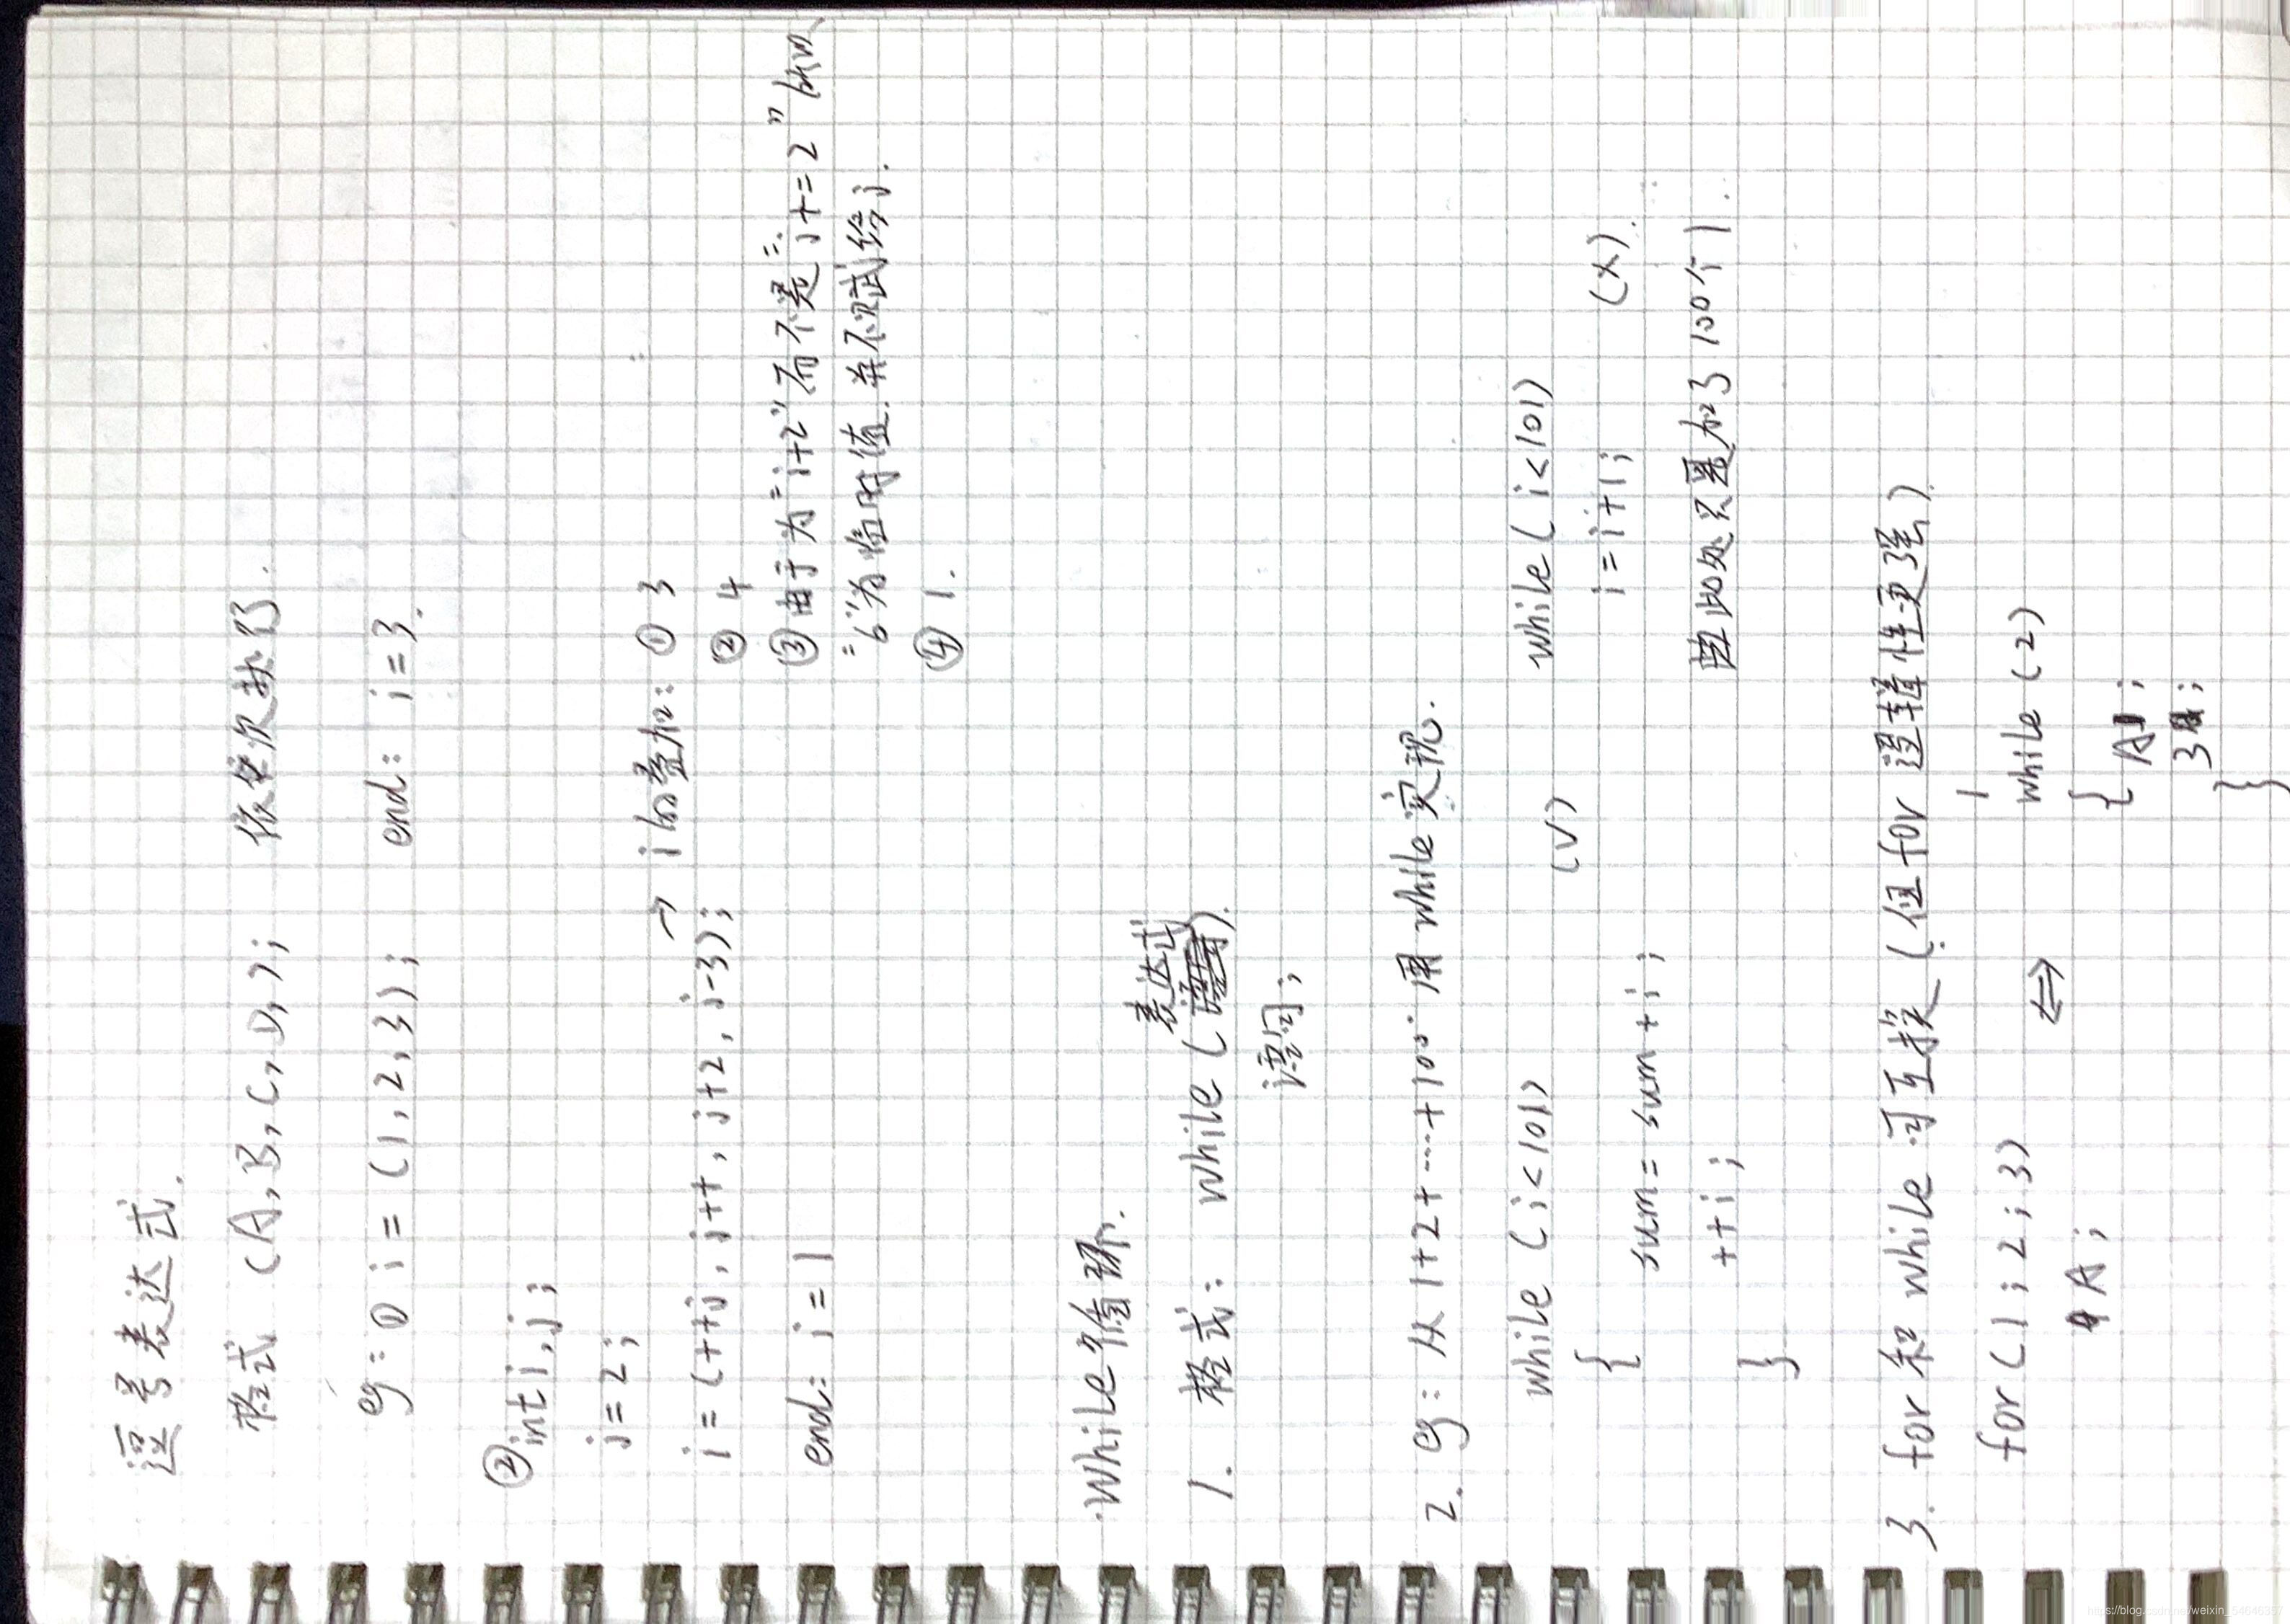 逗号表达式.
格式 (A,B,C,D,); 依次执行.
eg: ① i=(1,2,3); end: i=3.
② int i,j;
j=2; → i的叠加: ① 3
i=(++j, j++, j+2, j-3); ② 4
end: i=1 ③ 由于为"j+2"而不是"j+=2" 所以
"6"为临时值.并不赋给j.
④ 1.
·While循环.
表达式
1. 格式: while( ).
语句;
2. eg: 从 1+2+……+100 用while实现.
while (i<101) (√) while(i<101)
{ i=i+1; (×).
sum=sum+i;
++i; 此处只是加了100个1.
}
3. for 和 while 可互换 (但for 逻辑性更强)
1
for (1;2;3) ⇔ while (2)
A; { A;
3;
}
https://blog.csdn.net/weixin_54646357